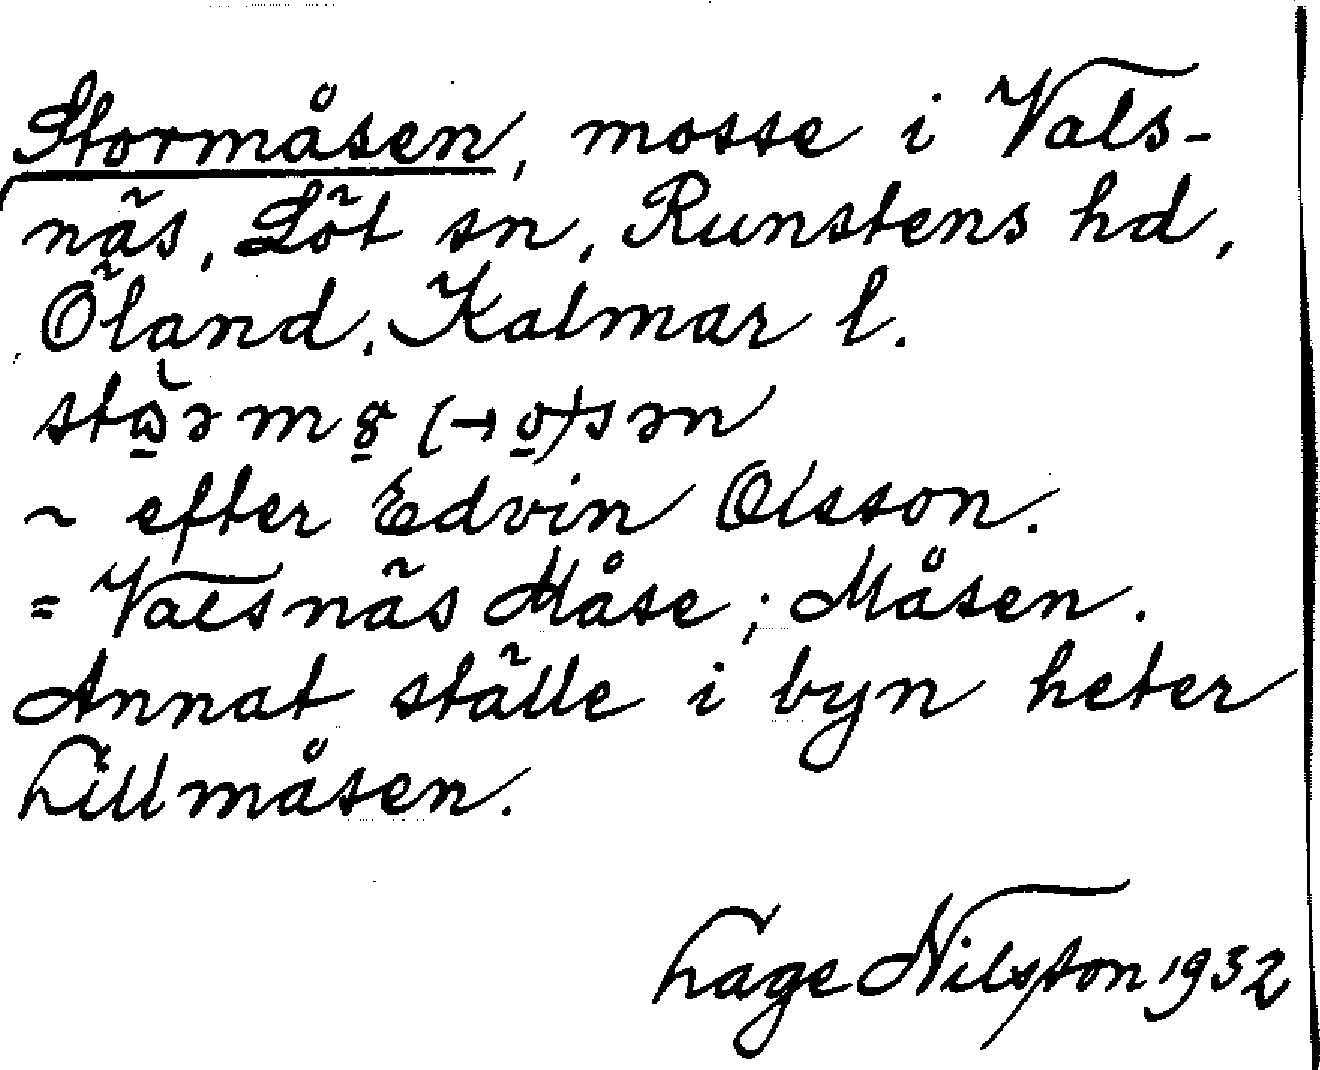 Stormåsen, mosse i Vals-
näs, Löt sn, Runstens hd,
Öland, Kalmar l.
~ efter Edvin Olsson.
= Valsnäs Måse; Måsen.
Annat ställe i byn heter
Lillmåsen.
Lage Nilsson 1932